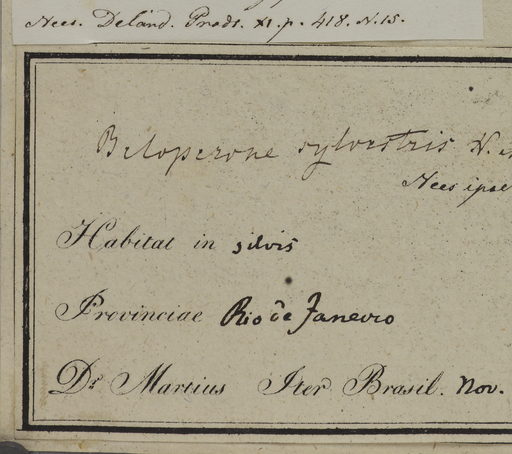 Nees. Deland. Prodr. XI. p. 418. N. 15.
Beloperone sylvestris N.
Nees ipse
Habitat in silvis
Provinciae Rio de Janeiro
Dr. Martius Iter Brasil. Nov.